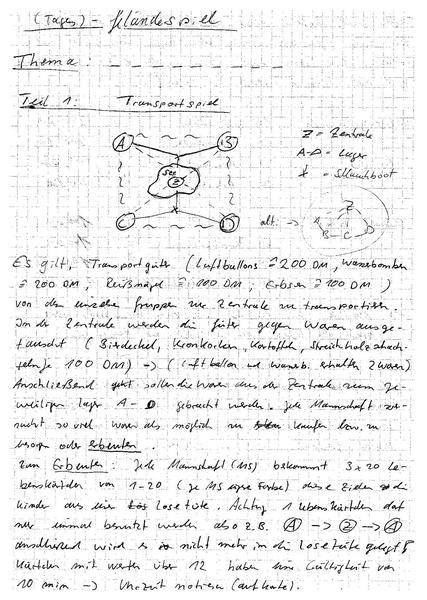 (Tages) - Geländespiel
Thema:
Teil 1: Transportspiel
A B
See
Z
C D
Z = Zentrale
A-D = Lager
x = Schlauchboot
alt. ->
Z
A B C D
Es gilt, Transportgüter (Luftballons ≙ 200 DM, Wasserbomben
≙ 200 DM, Reißnägel ≙ 100 DM, Erbsen ≙ 100 DM)
von den einzelnen Gruppen zur Zentrale zu transportieren.
In der Zentrale werden die Güter gegen Waren ausge-
tauscht (Bierdeckel, Kronkorken, Kartoffeln, Streichholzschach-
teln, je 100 DM) -> (Luftballon und Wasserb. erhalten 2 Waren)
Anschließend sollen die Waren aus der Zentrale zum je-
weiligen Lager A-D gebracht werden. Jede Mannschaft ver-
sucht so viel Waren als möglich zu kaufen bzw. zu
besorgen oder erbeuten.
Zum Erbeuten: Jede Mannschaft (MS) bekommt 3x20 Le-
benskärtchen von 1-20 (je MS eigene Farbe) diese ziehen die
Kinder aus einer Lostüte. Achtung 1 Lebenskärtchen darf
nur einmal benutzt werden also z.B. A -> Z -> A
anschließend wird es nicht mehr in die Lostüte gelegt!
Kärtchen mit Werten über 12 haben eine Gültigkeit von
10 min -> Uhrzeit notieren (auf Karte).